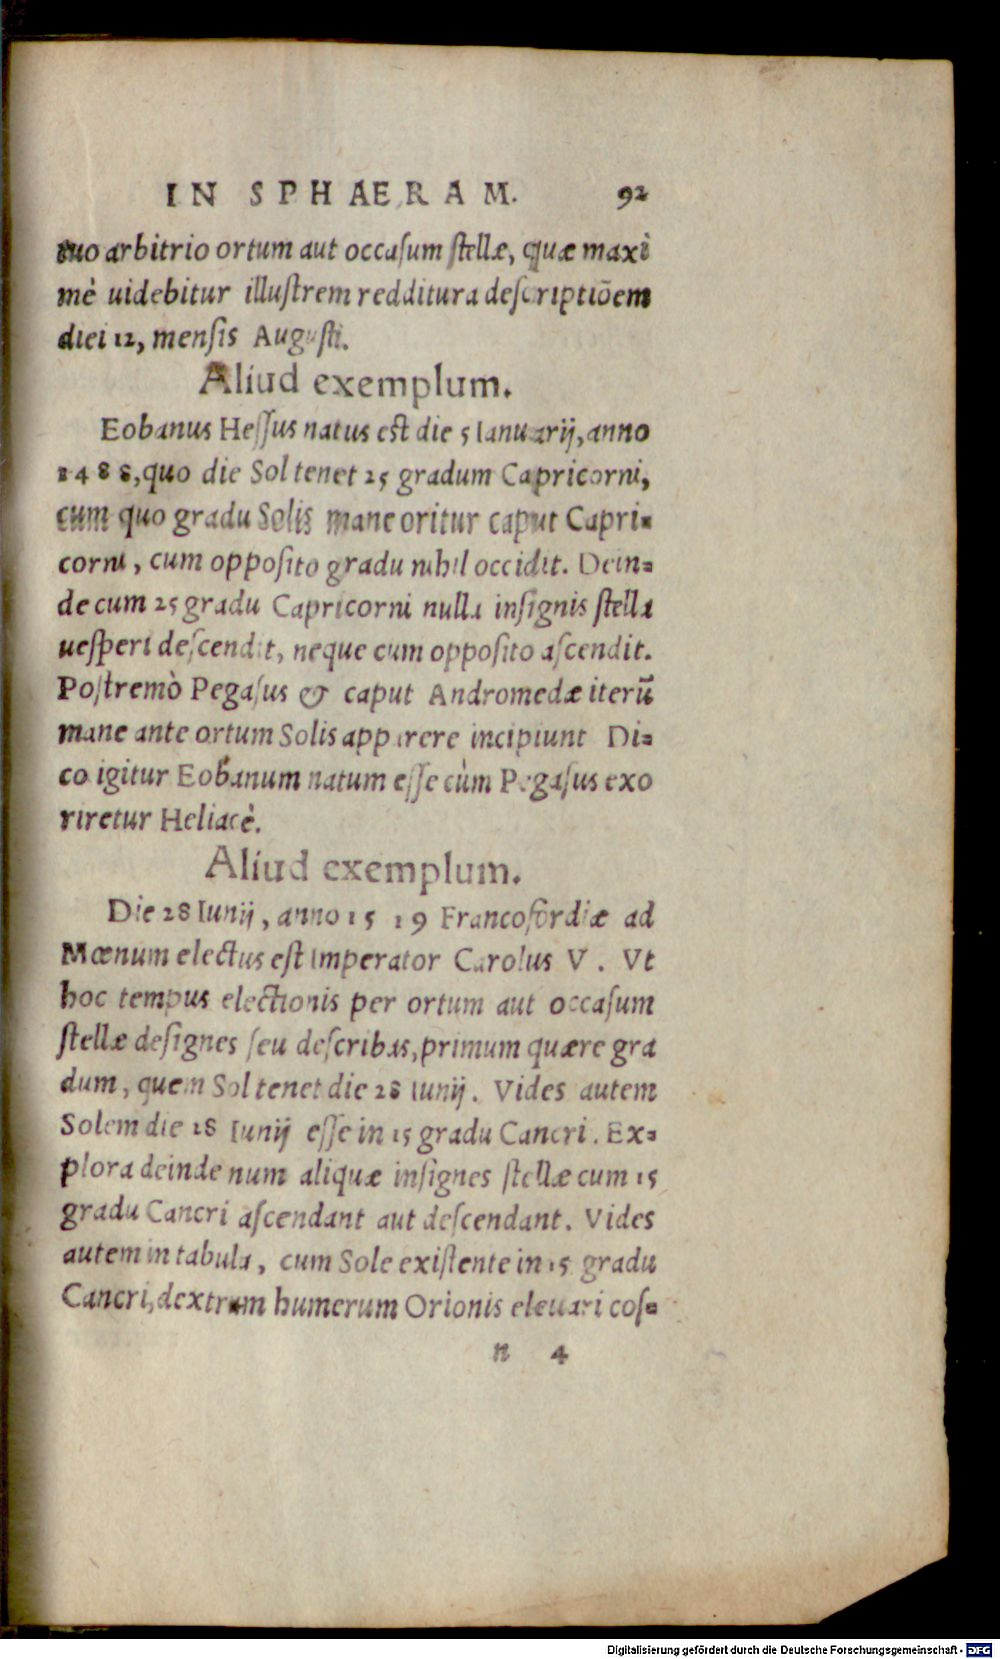 IN SPHAERAM. 92
tuo arbitrio ortum aut occaſum ſtellæ, quæ maxi
mè uidebitur illuſtrem redditura deſcriptiōem
diei 12, menſis Auguſti.
Aliud exemplum.
Eobanus Heſſus natus eſt die 5 Ianuarij, anno
1488, quo die Sol tenet 25 gradum Capricorni,
cum quo gradu Solis mane oritur caput Capri-
corni, cum oppoſito gradu nihil occidit. Dein-
de cum 25 gradu Capricorni nulla inſignis ſtella
ueſperi deſcendit, neque cum oppoſito aſcendit.
Poſtremò Pegaſus & caput Andromedæ iterũ
mane ante ortum Solis apparere incipiunt Di-
co igitur Eobanum natum eſſe cùm Pegaſus exo
riretur Heliacè.
Aliud exemplum.
Die 28 Iunij, anno 15 19 Francofordiæ ad
Mœnum electus eſt Imperator Carolus V. Vt
hoc tempus electionis per ortum aut occaſum
ſtellæ deſignes ſeu deſcribas, primum quære gra
dum, quem Sol tenet die 28 Iunij. Vides autem
Solem die 28 Iunij eſſe in 15 gradu Cancri. Ex-
plora deinde num aliquæ inſignes ſtellæ cum 15
gradu Cancri aſcendant aut deſcendant. Vides
autem in tabula, cum Sole exiſtente in 15 gradu
Cancri, dextrum humerum Orionis eleuari coſ-
n 4
Digitalisierung gefördert durch die Deutsche Forschungsgemeinschaft - DFG